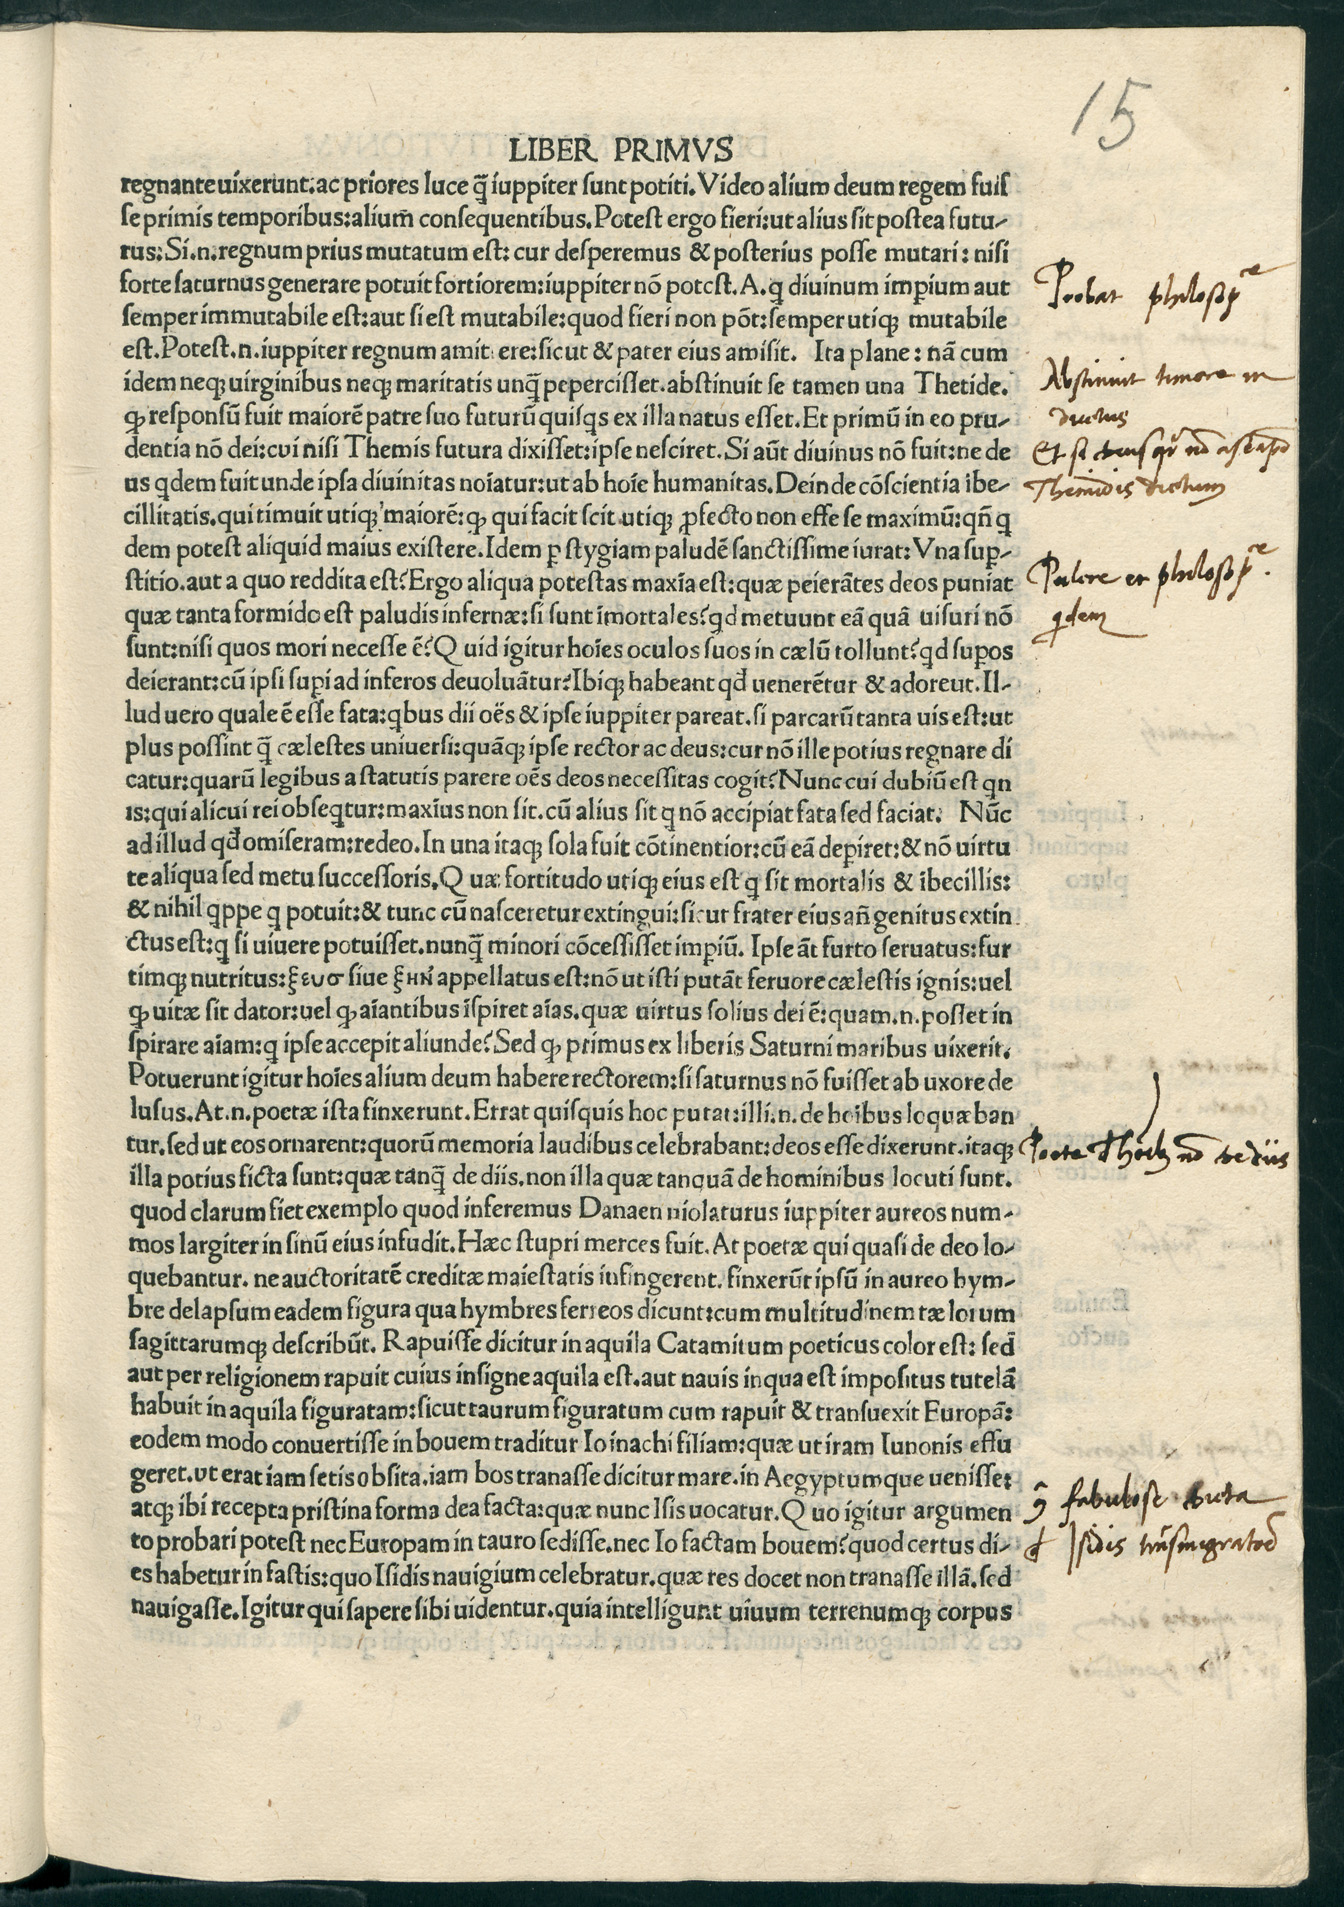 15
LIBER PRIMVS
regnante uixerunt:ac priores luce q̄ iuppiter sunt potiti. Video alium deum regem fuis
se primis temporibus:alium̄ consequentibus. Potest ergo fieri:ut alius sit postea futu-
rus: Si.n.regnum prius mutatum est: cur desperemus & posterius posse mutari: nisi
forte saturnus generare potuit fortiorem:iuppiter nō potest. A. q̣ diuinum imp̱ium aut
semper immutabile est:aut si est mutabile:quod fieri non pōt:semper utiqꝫ mutabile
est. Potest.n.iuppiter regnum amittere:sicut & pater eius amisit. Ita plane: nā cum
idem neqꝫ uirginibus neqꝫ maritatis unq̄ pepercisset.abstinuit se tamen una Thetide.
ꝙ responsū fuit maiorē patre suo futurū quisqs ex illa natus esset. Et primū in eo pru-
dentia nō dei:cui nisi Themis futura dixisset:ipse nesciret. Si aūt diuinus nō fuit:ne de
us qdem fuit unde ipsa diuinitas noīatur:ut ab hoīe humanitas. Deinde cōscientia ībe-
cillitatis.qui timuit utiqꝫ maiorē:ꝙ qui facit scit utiqꝫ ꝓfecto non esse se maximū:qn̄ q
dem potest aliquid maius existere. Idem ꝑ stygiam paludē sanctissime iurat: Vna suꝑ-
stitio.aut a quo reddita est? Ergo aliqua potestas maxīa est:quæ peierātes deos puniat
quæ tanta formido est paludis infernæ:si sunt īmortales?qd metuunt eā quā uisuri nō
sunt:nisi quos mori necesse ē? Quid igitur hoīes oculos suos in cælū tollunt?qd suꝑos
deierant:cū ipsi suꝑi ad inferos deuoluātur? Ibiqꝫ habeant qd̄ uenerētur & adoreut. Il-
lud uero quale ē esse fata:qbus dii oēs & ipse iuppiter pareat.si parcarū tanta uis est:ut
plus possint q̄ cælestes uniuersi:quāqꝫ ipse rector ac deus:cur nō ille potius regnare di
catur:quarū legibus a statutis parere oēs deos necessitas cogit? Nunc cui dubiū est qn
is:qui alicui rei obseqtur:maxīus non sit.cū alius sit q nō accipiat fata sed faciat. Nūc
ad illud qd̄ omiseram:redeo. In una itaqꝫ sola fuit cōtinentior:cū eā deꝑiret:& nō uirtu
te aliqua sed metu successoris. Quæ fortitudo utiqꝫ eius est q sit mortalis & ībecillis:
& nihil qppe q potuit:& tunc cū nasceretur extingui:sicut frater eius an̄ genitus extin
ctus est:q si uiuere potuisset.nunq̄ minori cōcessisset imꝑiū. Ipse āt furto seruatus:fur
timqꝫ nutritus:ξευσ siue ξηн appellatus est:nō ut isti putāt feruore cælestis ignis:uel
ꝙ uitæ sit dator:uel ꝙ aīantibus īspiret aīas.quæ uirtus solius dei ē:quam.n.posset in
spirare aīam:q ipse accepit aliunde? Sed ꝙ primus ex liberis Saturni maribus uixerit.
Potuerunt igitur hoīes alium deum habere rectorem:si saturnus nō fuisset ab uxore de
lusus. At.n.poetæ ista finxerunt. Errat quisquis hoc putat:illi.n.de hoībus loquæban
tur.sed ut eos ornarent:quorū memoria laudibus celebrabant:deos esse dixerunt.itaqꝫ
illa potius ficta sunt:quæ tanq̄ de diis.non illa quæ tanquā de hominibus locuti sunt.
quod clarum fiet exemplo quod inferemus Danaen uiolaturus iuppiter aureos num-
mos largiter in sinū eius infudit. Hæc stupri merces fuit. At poetæ qui quasi de deo lo-
quebantur. ne auctoritatē creditæ maiestatis infingerent. finxerūt ipsū in aureo hym-
bre delapsum eadem figura qua hymbres ferreos dicunt:cum multitudinem tælorum
sagittarumqꝫ describūt. Rapuisse dicitur in aquila Catamitum poeticus color est: sed̄
aut per religionem rapuit cuius insigne aquila est.aut nauis in qua est impositus tutelā
habuit in aquila figuratam:sicut taurum figuratum cum rapuit & transuexit Europā:
eodem modo conuertisse in bouem traditur Io inachi filiam:quæ ut iram Iunonis effu
geret.ut erat iam setis obsita.iam bos tranasse dicitur mare.in Aegyptumque uenisse:
atqꝫ ibi recepta pristina forma dea facta:quæ nunc Isis uocatur. Quo igitur argumen
to probari potest nec Europam in tauro sedisse.nec Io factam bouem?quod certus di-
es habetur in fastis:quo Isidis nauigium celebratur.quæ res docet non tranasse illā.sed
nauigasse. Igitur qui sapere sibi uidentur.quia intelligunt uiuum terrenumqꝫ corpus
Probat philosop̄e
Abstinuit timore in
ductus
Et si
Themidis dictum
Pulcre et philosop̄e.
qdem
Poete nō de diis
fabulose dicta
Isidis